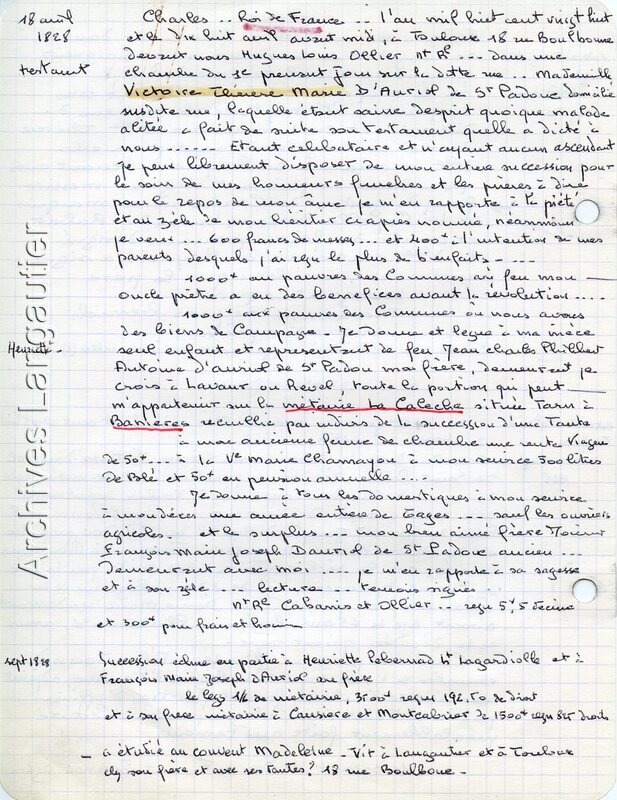 18 avril
1828
testament
Charles .. Roi de France .. l'an mil huit cent vingt huit
et le dix huit avril avant midi, à Toulouse 18 rue Boulbonne
devant nous Hugues Louis Ollier nre Rl ... dans une
chambre du 1e présent jour sur la ditte rue .. Mademoiselle
Victoire Therese Marie D'Auriol de St Padouc domiciliée
susdite rue, laquelle étant saine desprit quoique malade
alitée a fait de suite son testament quelle a dicté à
nous ...... Etant celibataire et n'ayant aucun ascendant
Je peux librement disposer de mon entiere succession pour
le soin de mes honneurs funebres et les prières à dire
pour le repos de mon âme je m'en rapporte à la piété
et au zèle de mon héritier ci après nommé, néammoins
je veux ... 600 francs de messes ... et 400+ à l'intention de mes
parents desquels j'ai reçu le plus de bienfaits - ...
1000+ au pauvres des Communes où feu mon
oncle prêtre a eu des benefices avant la révolution ....
1000+ aux pauvres des Communes ou nous avons
des biens de Campagne - Je donne et legue à ma nièce
Henriette -
seul enfant et representant de feu Jean Charles Philibert
Antoine d'auriol de St Padou mon frère, demeurant je
crois à Lavaur ou Revel, toute la portion qui peut
m'appartenir sur la métairie La Caleche située Tarn à
Banieres recueillie par indivis de la succession d'une Tante
à mon ancienne femme de chambre une rente Viagere
de 50+ ... à la Ve Marie Chamayou à mon service 500 litres
de Blé et 50+ en pension annuelle ....
Je donne à tous les domestiques à mon service
à mon décès une année entière de Gages ... sauf les ouvriers
agricoles. et le surplus ... mon bien aimé frère
François Marie Joseph Dauriol de St Padouc ancien ...
Demeurant avec moi .... je m'en rapporte à sa sagesse
et à son zèle ... lecture .. temoins signés ..
nre Rl Cabanis et Ollier .. reçu 5+, 5 decime
et 300+ pour frais et
sept 1828
Succession échue en partie à Henriette Lagardiolle et à
François Marie Joseph d'Auriol son frère
le legs 1/2 de métairie, 3500+ reçu 192,50 de droit
et à son frère métairie à Causiere et Montcabrier de 1500+ reçu droits
- a étudié au couvent Madeleine - Vit à Langautier et à Toulouse
chez son frère et avec ses tantes? 18 rue Boulbone -
Archives Langautier